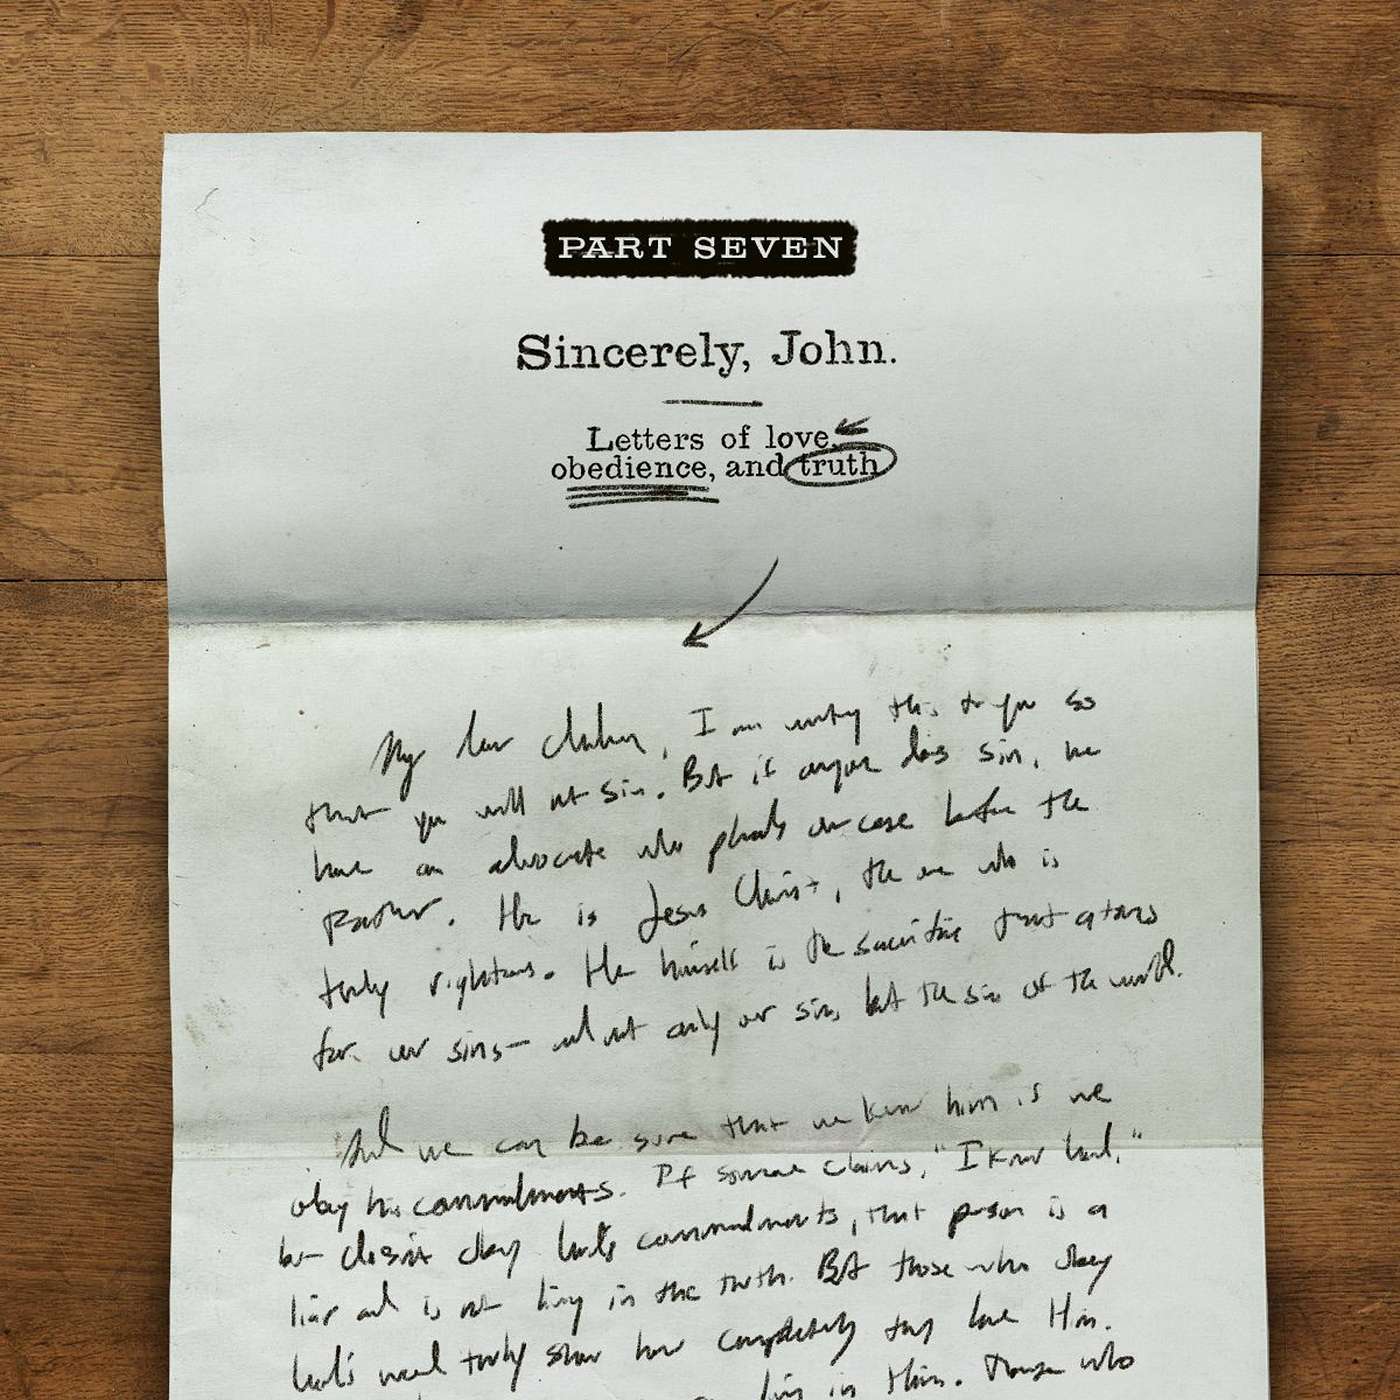 PART SEVEN
Sincerely, John.
Letters of love,
obedience, and truth
My dear children, I am writing this to you so
that you will not sin. But if anyone does sin, we
have an advocate who pleads our case before the
Father. He is Jesus Christ, the one who is
truly righteous. He himself is the sacrifice that atones
for our sins— and not only our sins but the sins of the world.
And we can be sure that we know him if we
obey his commandments. If someone claims, "I know God,"
but doesn't obey God's commandments, that person is a
liar and is not living in the truth. But those who obey
God's word truly show how completely they love Him.
live in Him. Those who